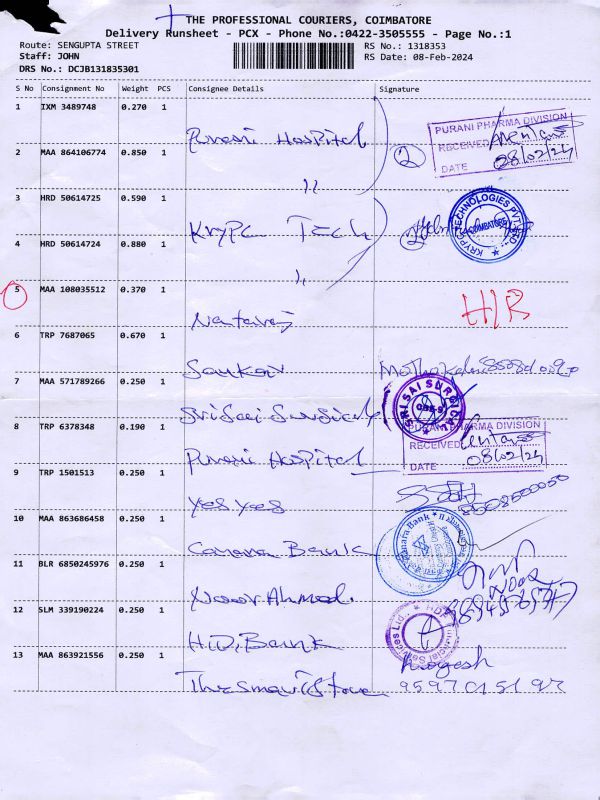 THE PROFESSIONAL COURIERS, COIMBATORE
Delivery Runsheet - PCX - Phone No.:0422-3505555 - Page No.:1
Route: SENGUPTA STREET
Staff: JOHN
DRS No.: DCJB131835301
RS No.: 1318353
RS Date: 08-Feb-2024
S No Consignment No Weight PCS Consignee Details Signature
1 IXM 3489748 0.270 1 Purani Hospital
PURANI PHARMA DIVISION
RECEIVED
DATE 08/02/24
2 MAA 864106774 0.850 1 〃 2
3 HRD 50614725 0.590 1 Krypc Tech
KRYPC TECHNOLOGIES PVT. LTD.
COIMBATORE
4 HRD 50614724 0.880 1 〃 2
5 MAA 108035512 0.370 1 Nataraj H/R
6 TRP 7687065 0.670 1 Sankar
7 MAA 571789266 0.250 1 Sri Sai Surgicals
SRI SAI SURGICAL
8 TRP 6378348 0.190 1 Purani Hospital
PURANI PHARMA DIVISION
RECEIVED
DATE 08/02/24
9 TRP 1501513 0.250 1 Yes Yes
10 MAA 863686458 0.250 1 Canara Bank
Canara Bank
11 BLR 6850245976 0.250 1 Noor Ahmed
Noor
12 SLM 339190224 0.250 1 H.D. Bank
Financial Services Ltd.
13 MAA 863921556 0.250 1 The Smart Store
9597015197